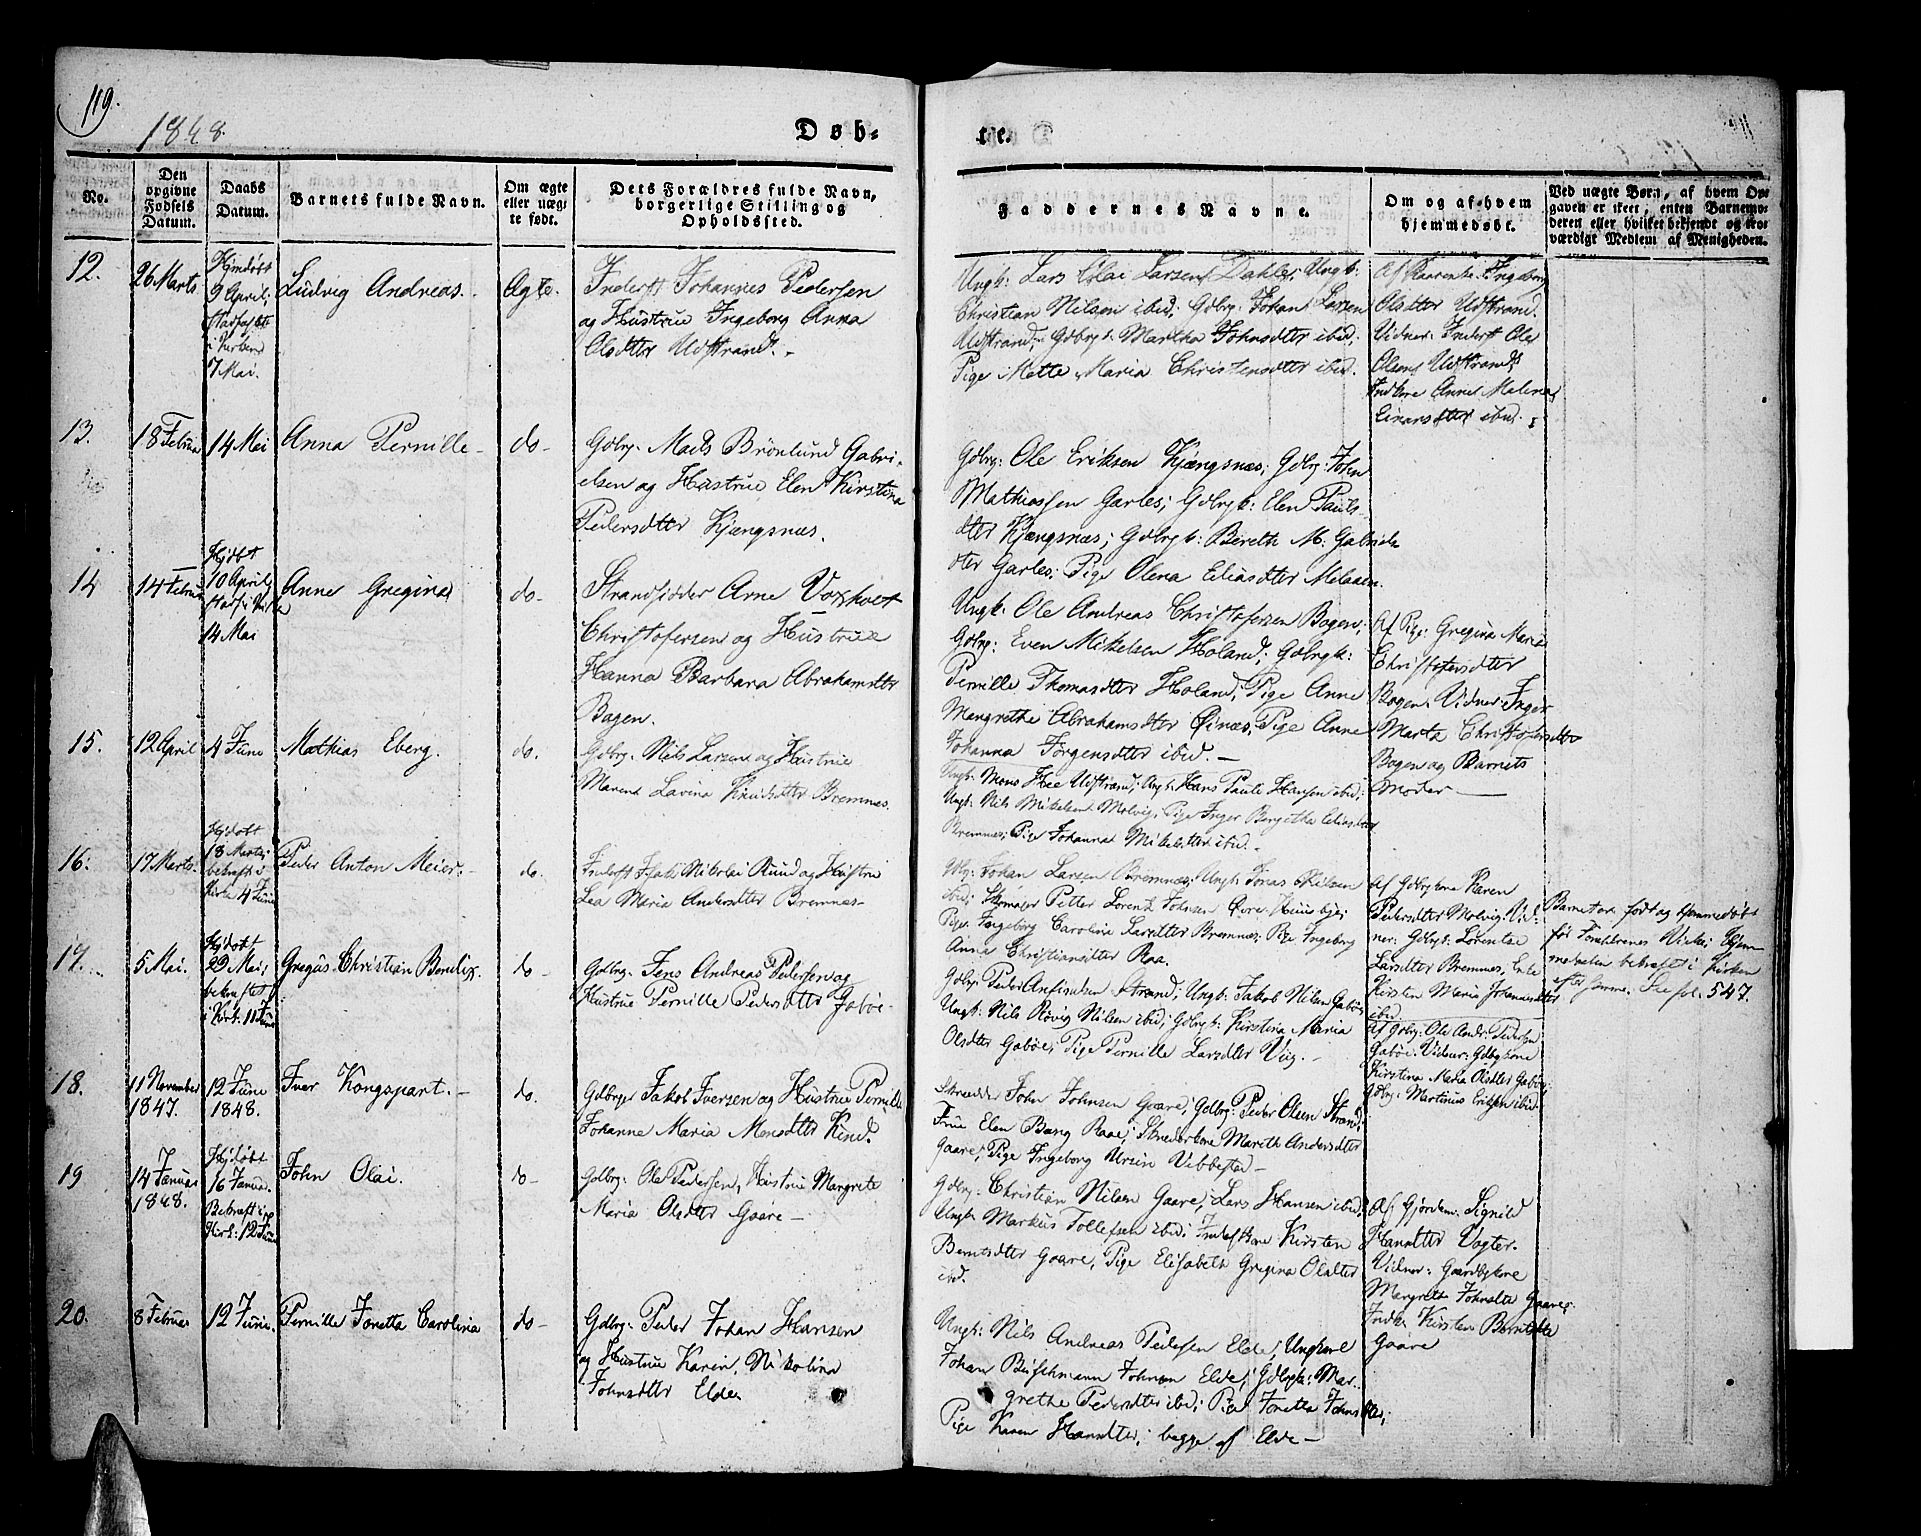 119.
1848.
Døb-
te.
No.
Den opgivne Fødsels Datum.
Daabs Datum.
Barnets fulde Navn.
Om ægte eller uægte født.
Dets Forældres fulde Navn, borgerlige Stilling og Opholdssted.
Faddernes Navne.
Om og af hvem hjemmedøbt.
Ved uægte Børn, af hvem Opgaven er skeet, enten Barnemoderen eller hvilket bekjendt og troværdigt Medlem af Menigheden.
12.
26 Marts
Hjmdøbt
9 April,
stadfæstet
i Kirken
7 Mai.
Ludvig Andreas.
Ægte.
Inderst Johannes Pedersen
og Hustrue Ingeborg Anna
Olsdtter Udstrand.
Ungk: Lars Olai Larsen Dahle; Ungk:
Christian Nilsen ibid; Gdbrg: Johan Larsen
Udstrand; Gdbrgk: Martha Johnsdtter ibid;
Pige Mette Maria Christensdtter ibid.
Af Ingeborg
Olsdtter Udstrand.
Vidner: Inderst Ole
Olsen Udstrand,
Indkone Anne Malena
Einarsdtter ibid.
13.
18 Februar
14 Mai
Anna Pernille
do
Gdbrg: Mads Brønlund Gabri-
elsen og Hustrue Elen Kirstina
Pedersdtter Kjængsnæs.
Gdbrg: Ole Eriksen Kjængsnæs; Gdbg: John
Mathiassen Garles; Gdbrgk: Elen Pauls-
dtter Kjængsnæs; Gdbrgk: Bereth M: Gabriels
dtter Garles; Pige Olena Eliasdtter Melaaen.
14
14 Februar
Hjdøbt
10 April,
stadf. i Kirke
14 Mai
Anne Gregina
do
Strandsidder Arne Voxholt
Christofersen og Hustrue
Hanna Barbara Abrahamsdtter
Bogen.
Ungk: Ole Andreas Christofersen Bogen;
Gdbrg: Even Mikelsen Holand; Gdbrgk:
Pernille Thomasdtter Holand, Pige Anne
Mangrethe Abrahamsdtter Øinæs, Pige Anne
Johanna Jørgensdtter ibid.
Af Pige: Gregina Maria
Christofersdtter
Bogen. Vidner Inger
Marta Christofersdtter
Bogen og Barnets
Moder
15.
12 April
4 June
Mathias Eberg.
do.
Gdbrg: Nils Larsen og Hustrue
Maren Lavina Knudsdtter Bremnæs.
Ungk: Mons Hee Udstrand; Ungk: Hans Pauli Hansen ibid;
Ungk: Nils Mikelsen Molvig; Pige Inger Bergitha Eliasdtter
Bremnæs; Pige Johanna Mikelsdtter ibid.
16.
17 Marts
Hjdøbt
18 Marts;
bekræft i
Kirke 4 June
Peder Anton Meier.
do.
Inderst Isak Nikolai Ruud og Hustrue
Lea Maria Andersdtter Bremnæs
Gdbg: Johan Larsen Bremnæs; Ungk: Jonas Nilsen
ibid; Skomager Petter Lorentz Johnsen Huusbye;
Pige Ingeborg Carolina Larsdtter Bremnæs; Pige Ingeborg
Anna Christiansdtter Raa.
Af Gdbgkone Karen
Pedersdtter Molvig. Vid-
ner: Gdbgk: Lorentze
Larsdtter Bremnæs, Enke
Kirsten Maria Johannesdtter
ibid.
Barnet er født og hjemmedøbt
før Forældrenes Vielse;
bekræft i Kirken
efter samme. See fol. 547.
17.
5 Mai.
Hjdøbt
29 Mai,
bekræftet
i Kirk. 11 June
Gregus Christian Bendix.
do
Gdbrg: Jens Andreas Pedersen og
Hustrue Pernille Pedersdtter Gabøe.
Gdbrg: Peder Anfindsen Strand; Ungk: Jakob Nilsen Gabøe;
Ungk: Nils Røvig Nilsen ibid; Gdbrgk: Kirstina Maria
Olsdtter Gabøe; Pige Pernille Larsdtter Viig.
Af Gdbrg: Ole Andr: Pedersen
Gabøe. Vidner: Gdbgkone
Kirstina Maria Olsdtter Gabøe;
Gdbrg: Martinus Eriksen ibid.
18.
11 November
1847.
12 June
1848.
Iver Kongspart.
do.
Gdbrger Jakob Iversen og Hustrue Pernille
Johanne Maria Monsdtter Kind.
Skræedder John Johnsen Gaare; Gdbrg: Peder Olsen Strand;
Frue Elen Bang Raae; Skræderkone Mareth Andersdtter
Gaare; Pige Ingeborg Ursin Vibbestad
19
14 Januar
1848.
Hjdøbt
16 Januar.
Bekræft i
Kirk: 12 June
John Olai.
do
Gdbrg: Ole Pedersen, Hustrue Mangrete
Maria Olsdtter Gaare
Gdbrg: Christian Nilsen Gaare, Lars Hansen ibid;
Ungk: Markus Tollefsen ibid; Inderstkone Kirsten
Berntsdtter Gaare; Pige Elisabeth Gregina Olsdtter
ibid.
Af Gjordem: Signild
Hansdtter Vogter.
Vidner: Gaardbgkone
Margrethe Johnsdtter Gaare;
Indk: Kirsten Berntsdtter
Gaare
20.
8 Februar
12 June.
Pernille Jonetta Carolina
do
Gdbrg: Peder Johan Hansen
og Hustrue Karin Nikolina
Johnsdtter Elde.
Ungk: Nils Andreas Pedersen Elde; Ungkarl
Johan Buschmann Johnsen Elde; Gdbrgk: Mar-
grethe Pedersdtter ibid; Pige Jonetta Johnsdtter;
Pige Karen Hansdtter; begge af Elde